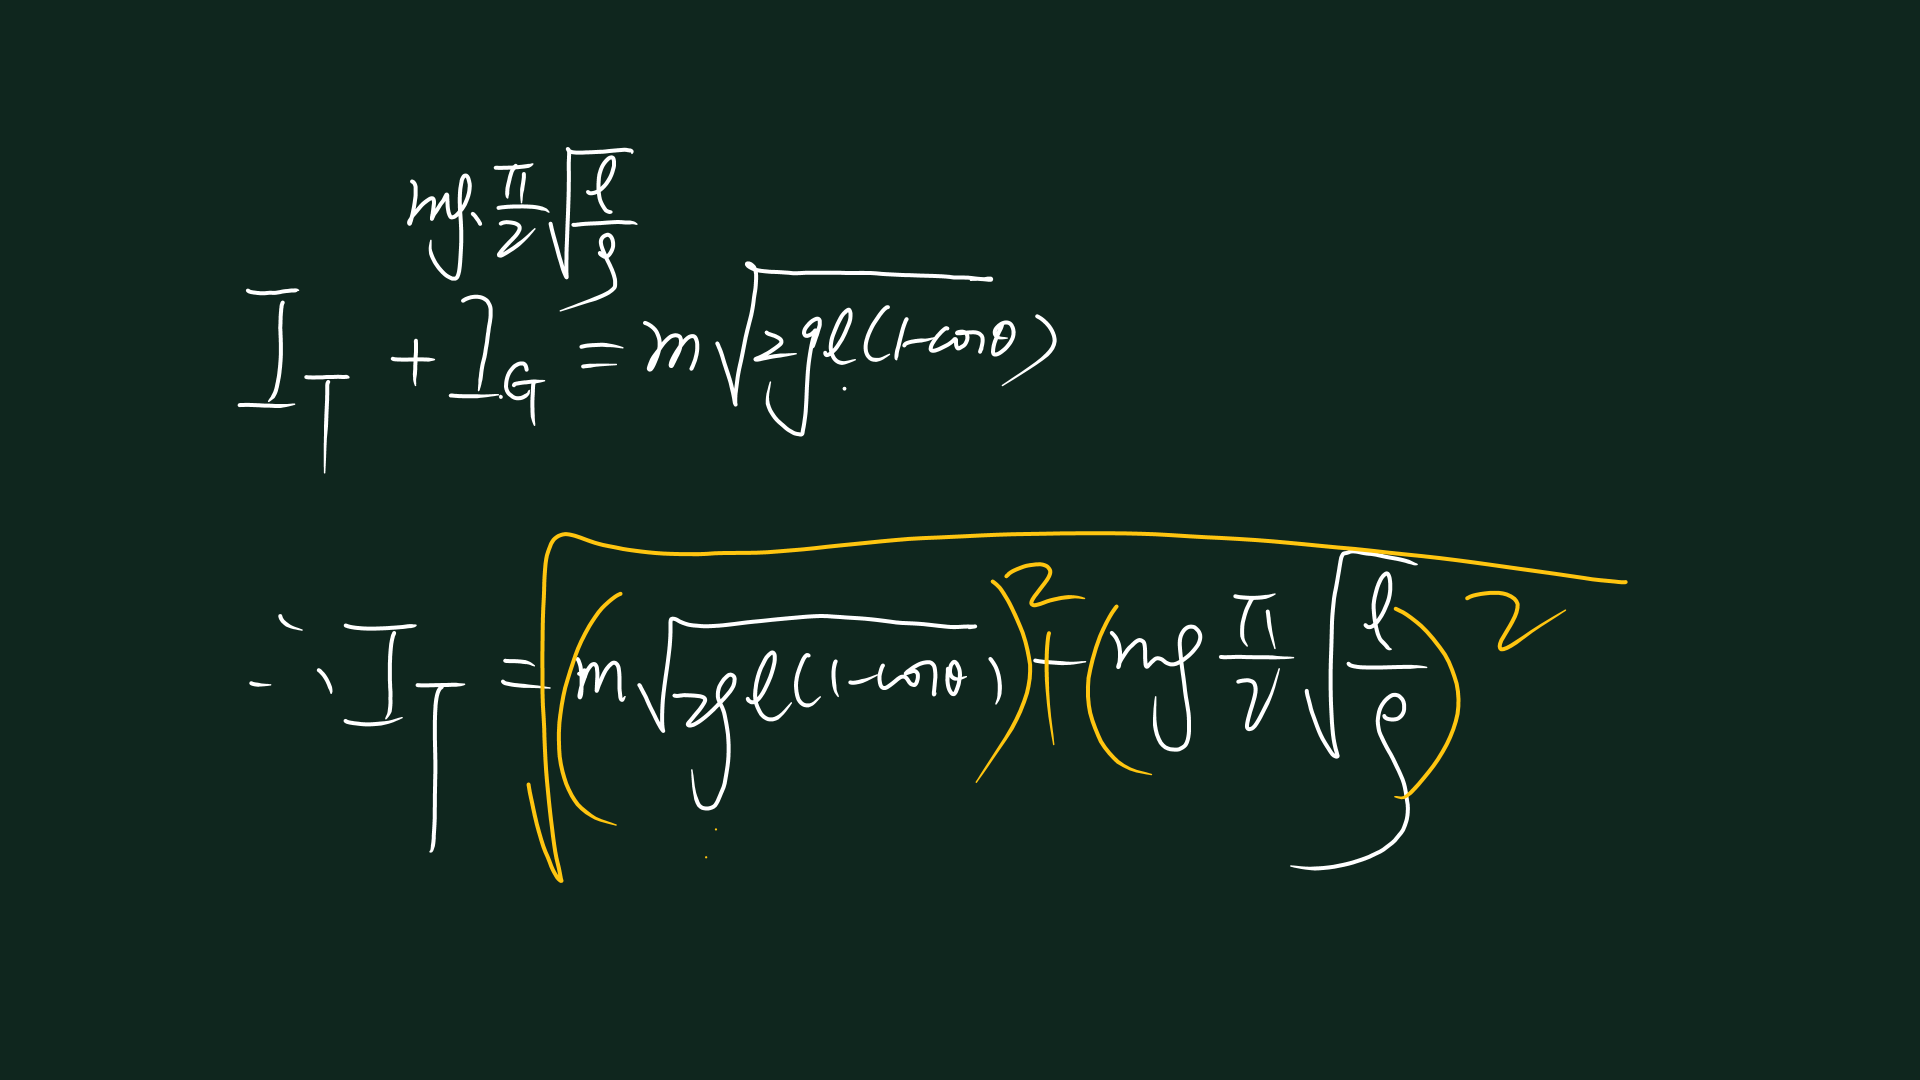 mg·π/2 √(ℓ/g)
I_T + I_G = m√(2gℓ(1-cosθ))
∴ I_T = √((m√(2gℓ(1-cosθ)))² + (mg π/2 √(ℓ/g))²)